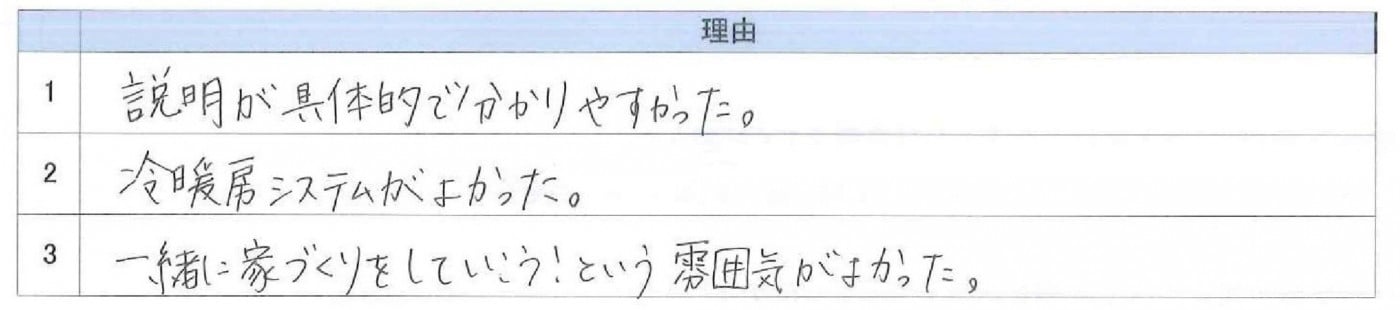 理由
1 説明が具体的で分かりやすかった。
2 冷暖房システムがよかった。
3 一緒に家づくりをしていこう！という雰囲気がよかった。